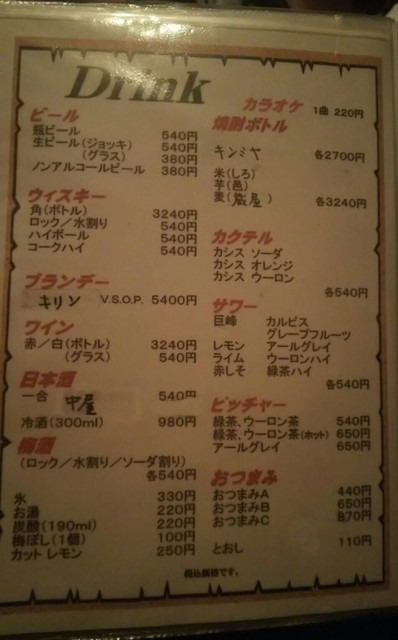 Drink
ビール
瓶ビール 540円
生ビール(ジョッキ) 540円
(グラス) 380円
ノンアルコールビール 380円
ウィスキー
角(ボトル) 3240円
ロック/水割り 540円
ハイボール 540円
コークハイ 540円
ブランデー
キリン V.S.O.P. 5400円
ワイン
赤/白(ボトル) 3240円
(グラス) 540円
日本酒
一合 中屋 540円
冷酒(300ml) 980円
梅酒
(ロック/水割り/ソーダ割り)
各540円
氷 330円
お湯 220円
炭酸(190ml) 220円
梅ぼし(1個) 100円
カットレモン 250円
カラオケ 1曲 220円
焼酎ボトル
キンミヤ 各2700円
米(しろ)
芋(邑)
麦(蔵屋) 各3240円
カクテル
カシス ソーダ
カシス オレンジ
カシス ウーロン
各540円
サワー
巨峰 カルピス
グレープフルーツ
レモン アールグレイ
ライム ウーロンハイ
赤しそ 緑茶ハイ
各540円
ピッチャー
緑茶、ウーロン茶 540円
緑茶、ウーロン茶(ホット) 650円
アールグレイ 650円
おつまみ
おつまみA 440円
おつまみB 650円
おつまみC 870円
とおし 110円
税込価格です。